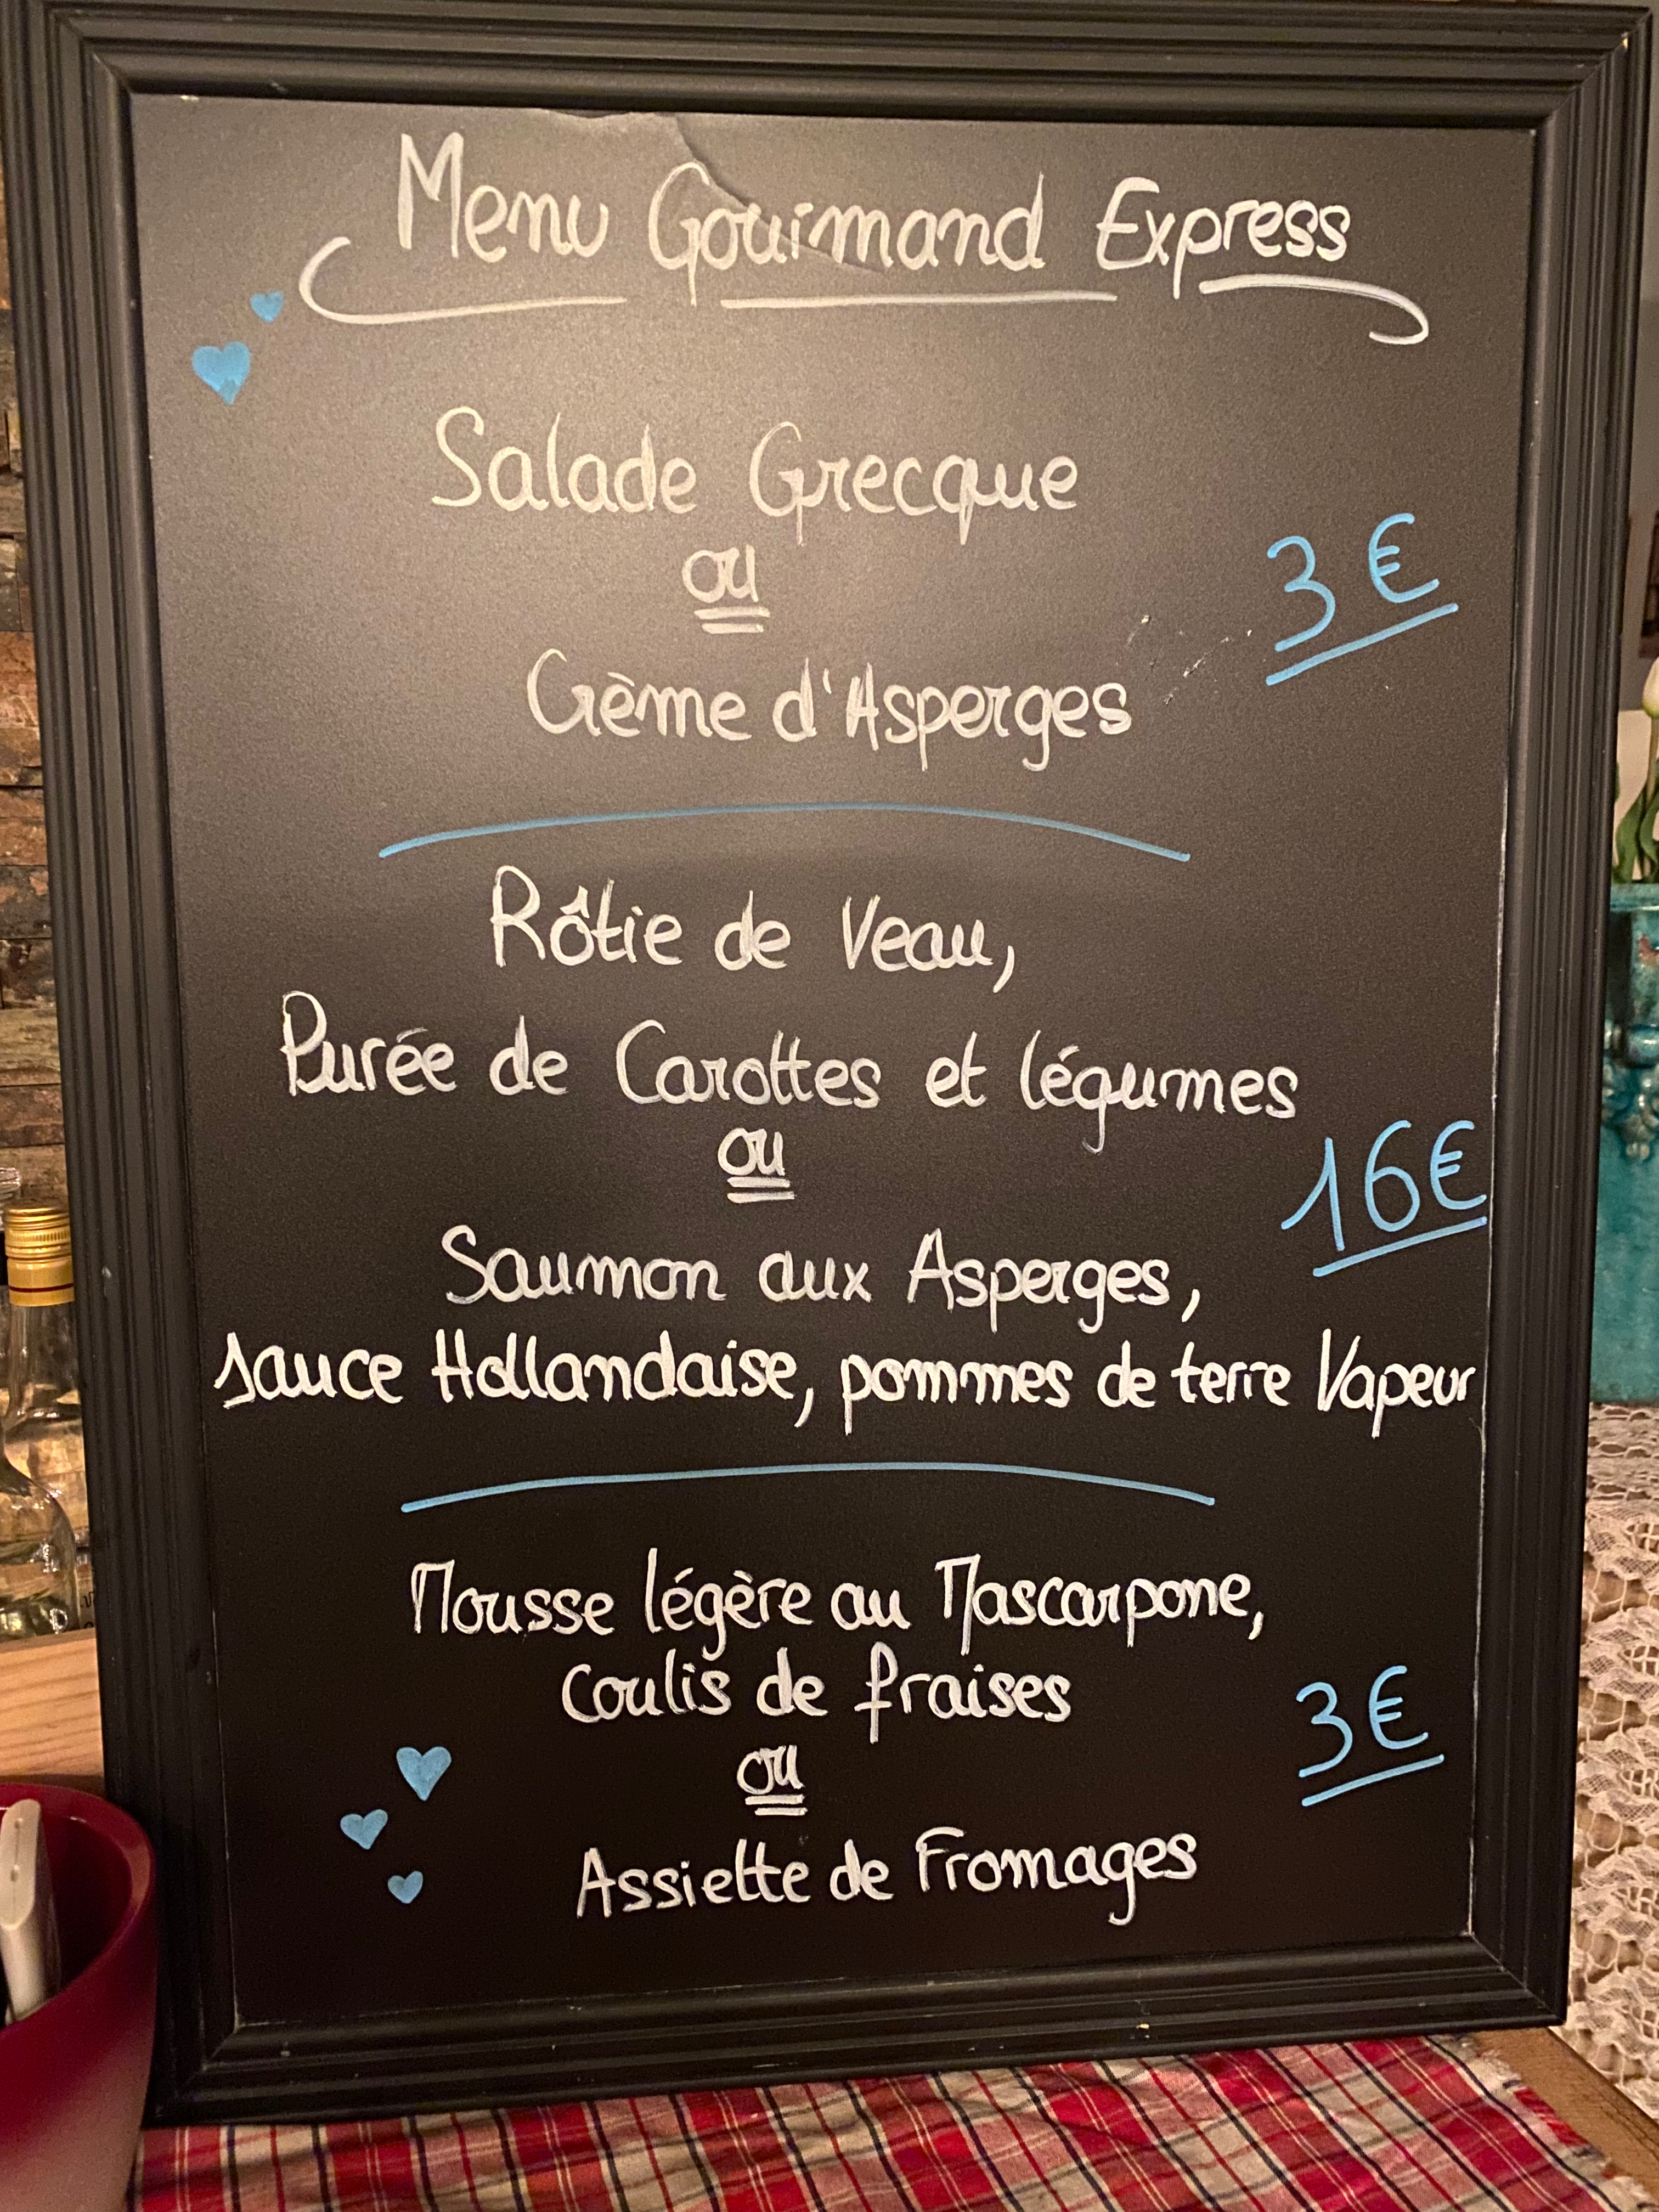 Menu Gourmand Express
Salade Grecque
ou
3€
Crème d'Asperges
Rôtie de Veau,
Purée de Carottes et légumes
ou
16€
Saumon aux Asperges,
sauce Hollandaise, pommes de terre Vapeur
Mousse légère au Mascarpone,
coulis de fraises
3€
ou
Assiette de Fromages